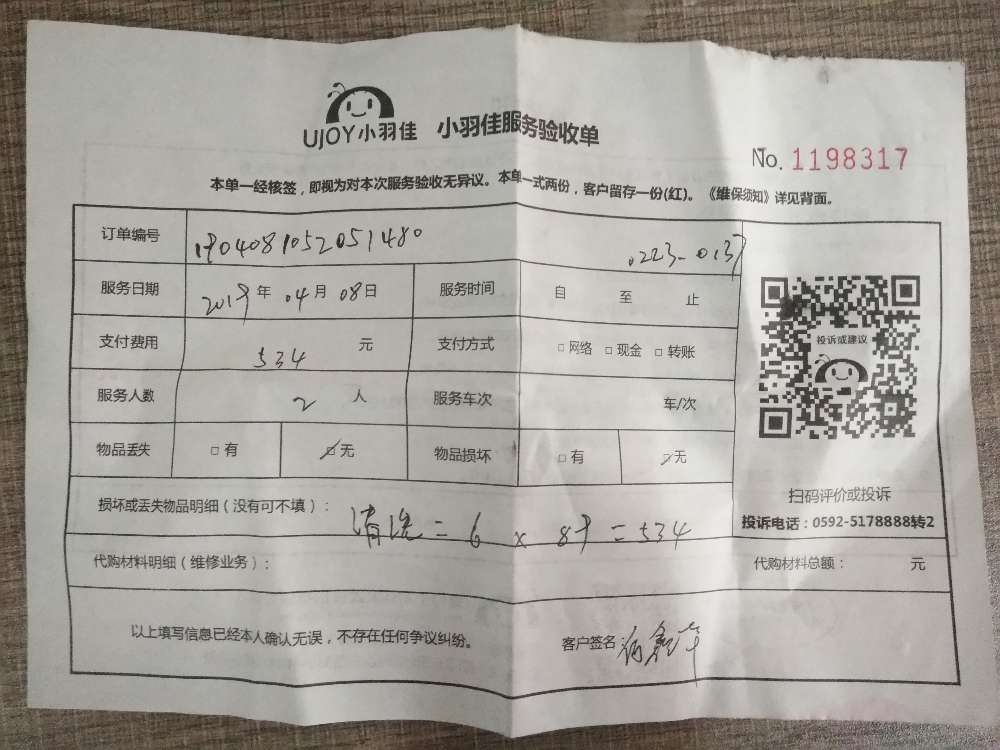 UJOY小羽佳 小羽佳服务验收单
No. 1198317
本单一经核签，即视为对本次服务验收无异议。本单一式两份，客户留存一份(红)。《维保须知》详见背面。
订单编号 1904081052051480 0223-0137
服务日期 2019年 04月 08日 服务时间 自 至 止
支付费用 534 元 支付方式 □网络 □现金 □转账
服务人数 2 人 服务车次 车/次
物品丢失 □有 ☑无 物品损坏 □有 ☑无
损坏或丢失物品明细（没有可不填）： 清洗=6×89=534
代购材料明细（维修业务）： 代购材料总额： 元
以上填写信息已经本人确认无误，不存在任何争议纠纷。 客户签名
投诉或建议
扫码评价或投诉
投诉电话：0592-5178888转2